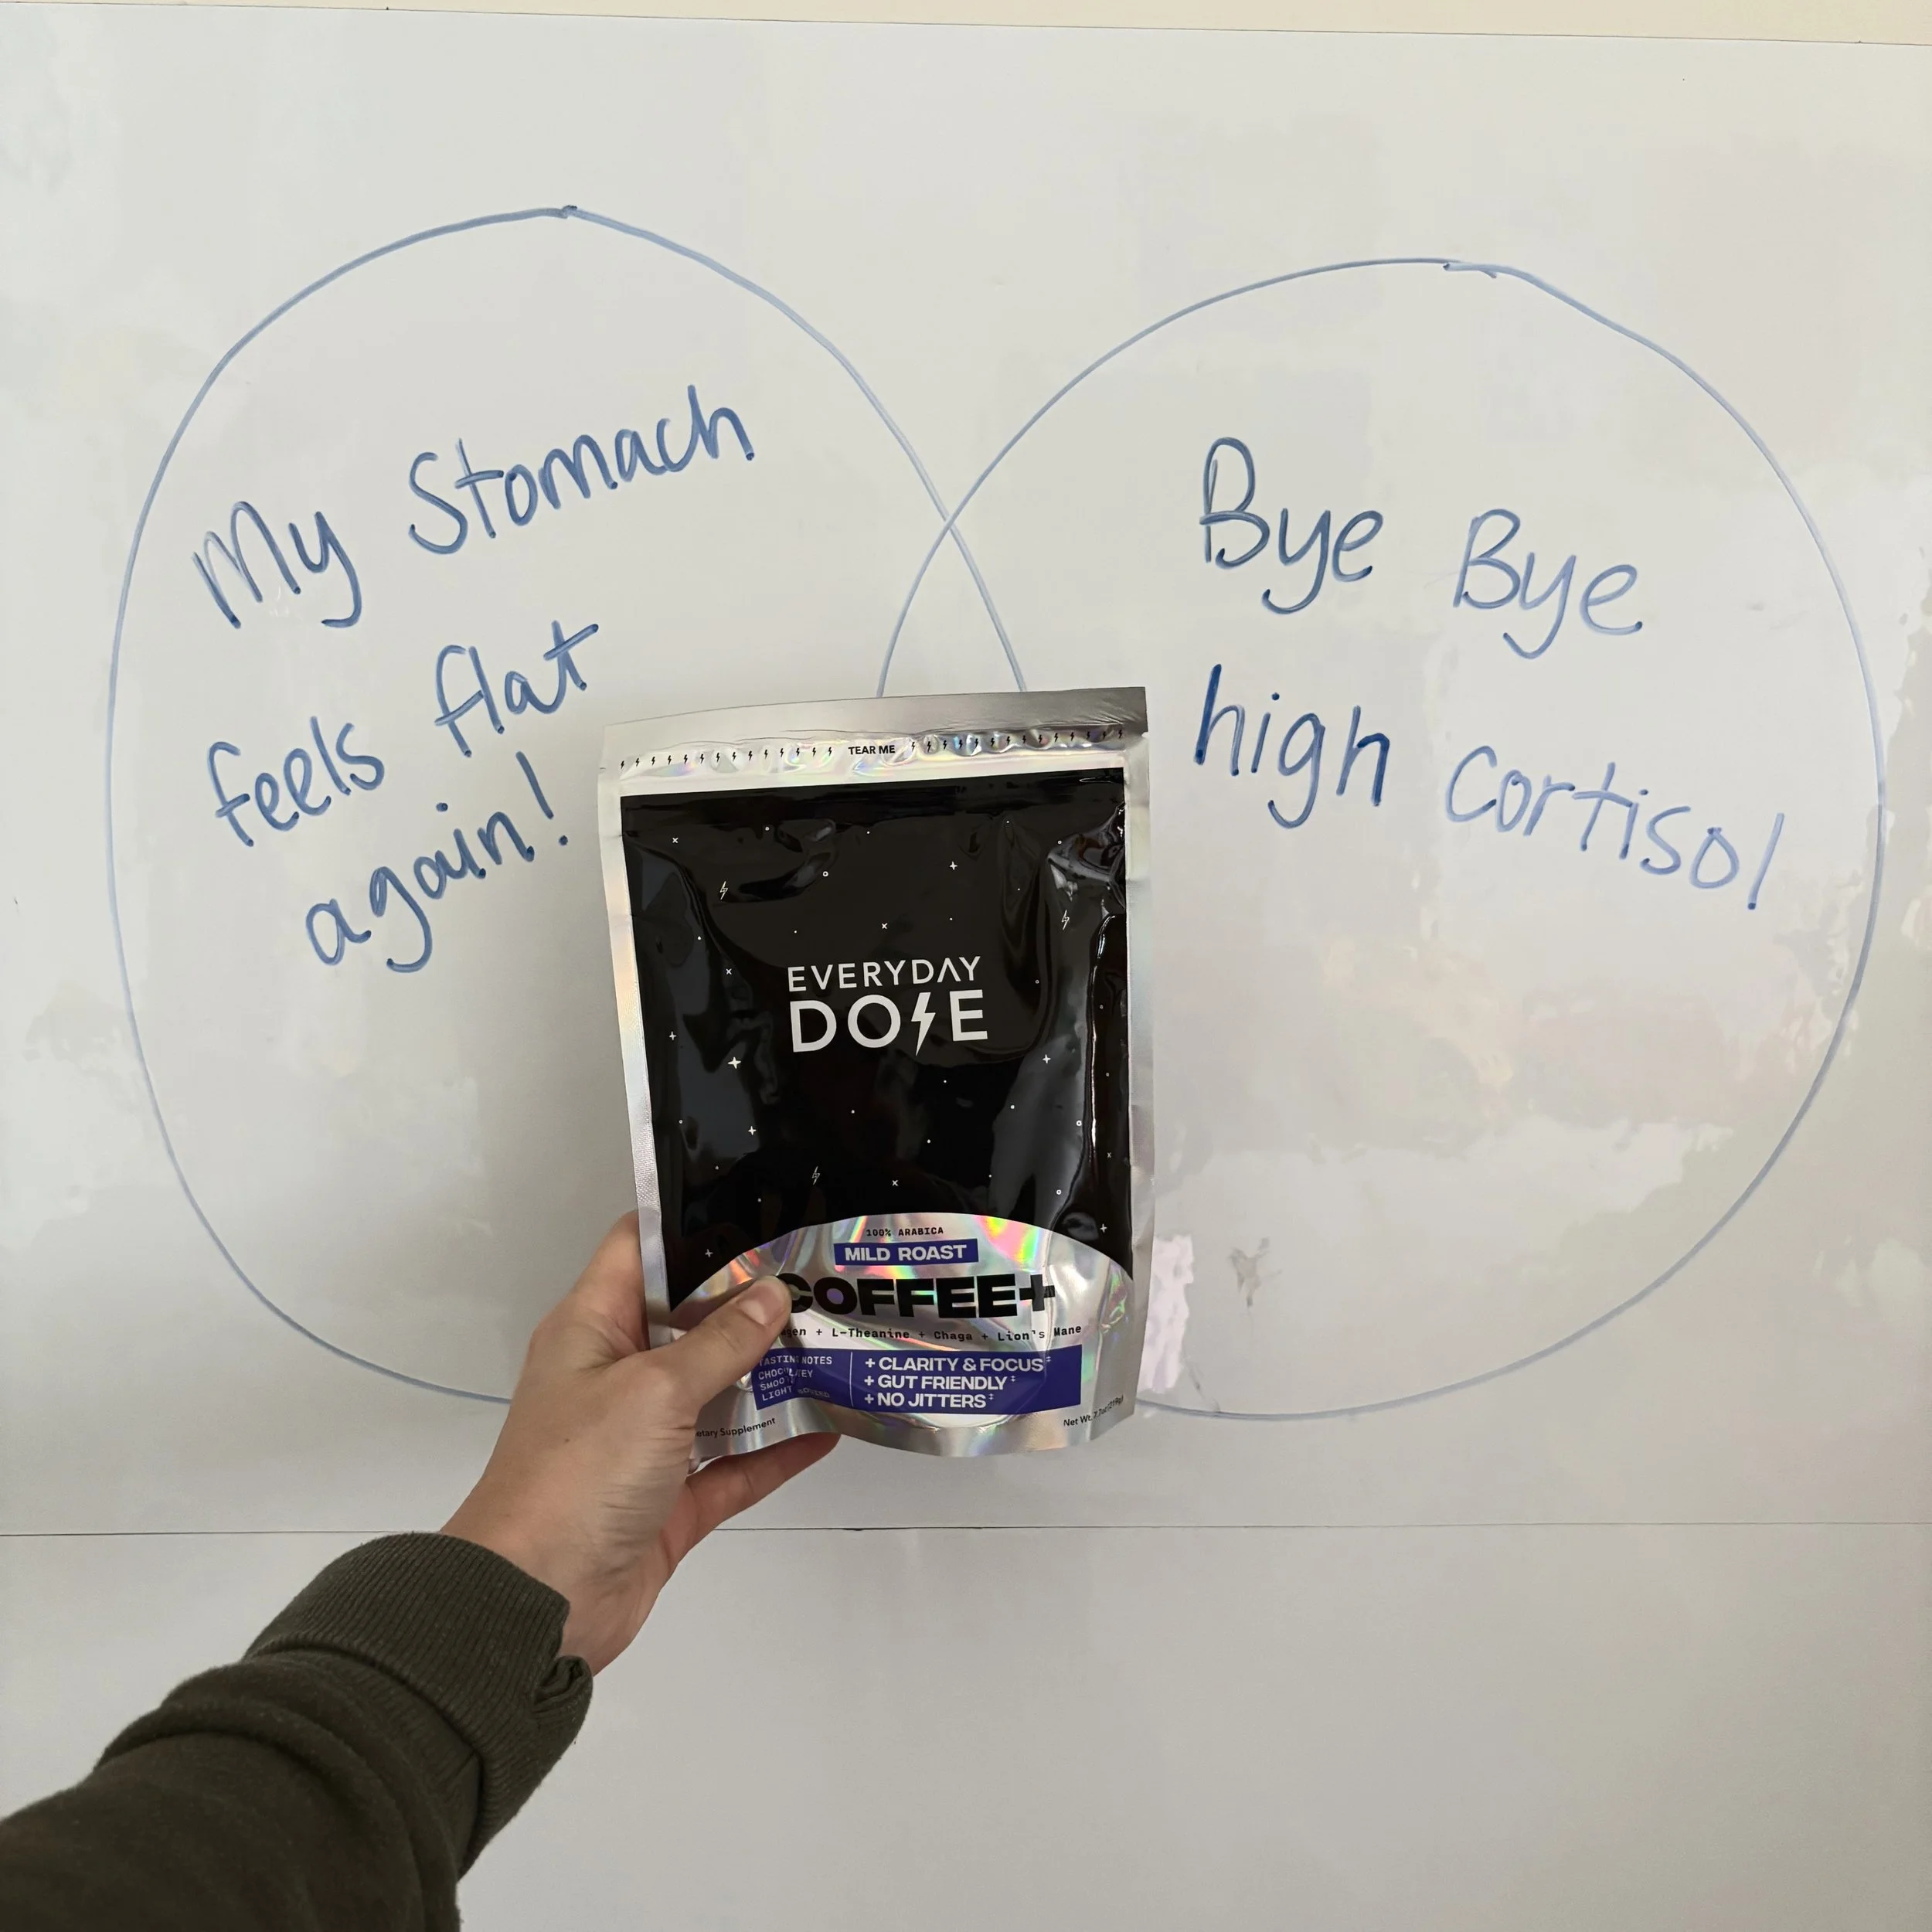 My Stomach
feels flat
again!
Bye Bye
high cortisol
TEAR ME
EVERYDAY
DOSE
100% ARABICA
MILD ROAST
COFFEE+
+ L-Theanine + Chaga + Lion's Mane
TASTING NOTES
CHOCOLATEY
SMOOTH
LIGHT
+ CLARITY & FOCUS‡
+ GUT FRIENDLY‡
+ NO JITTERS‡
Supplement
Net Wt. 7.7oz (219g)